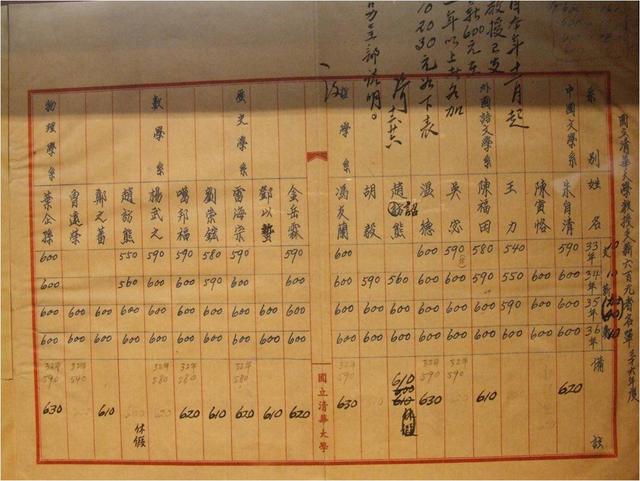 國立清華大學教授支薪六百元者名單 三十六年度
自本年十一月起
教授已支
薪600元在
一年以上者各加
10 20 30元如下表
系別 姓名 33年 34年 35年 36年 備註
中國文學系 朱自清 590 600 600 600 620
陳寅恪 600 600 600
王力 540 550 590 600
外國語文學系 陳福田 580 590 600 600 610
吳宓 590 600 600 600 32年 590
溫德 600 600 600 600 32年 590 630
趙詔熊 560 600 600 610 休假
胡毅 590 600 600
哲學系 馮友蘭 600 600 600 600 630
國立清華大學
金岳霖 590 600 600 600 620
鄧以蟄 600 600 610
歷史學系 雷海宗 590 600 600 600 32年 580 620
劉崇鋐 580 590 600 600 610
噶邦福 590 600 600 600 32年 580 620
數學系 楊武之 590 600 600 600 32年 580
趙訪熊 550 560 600 600 休假
鄭之蕃 600 600 610
曾遠榮 600 600 32年 540
物理學系 葉企孫 600 600 600 600 32年 590 630